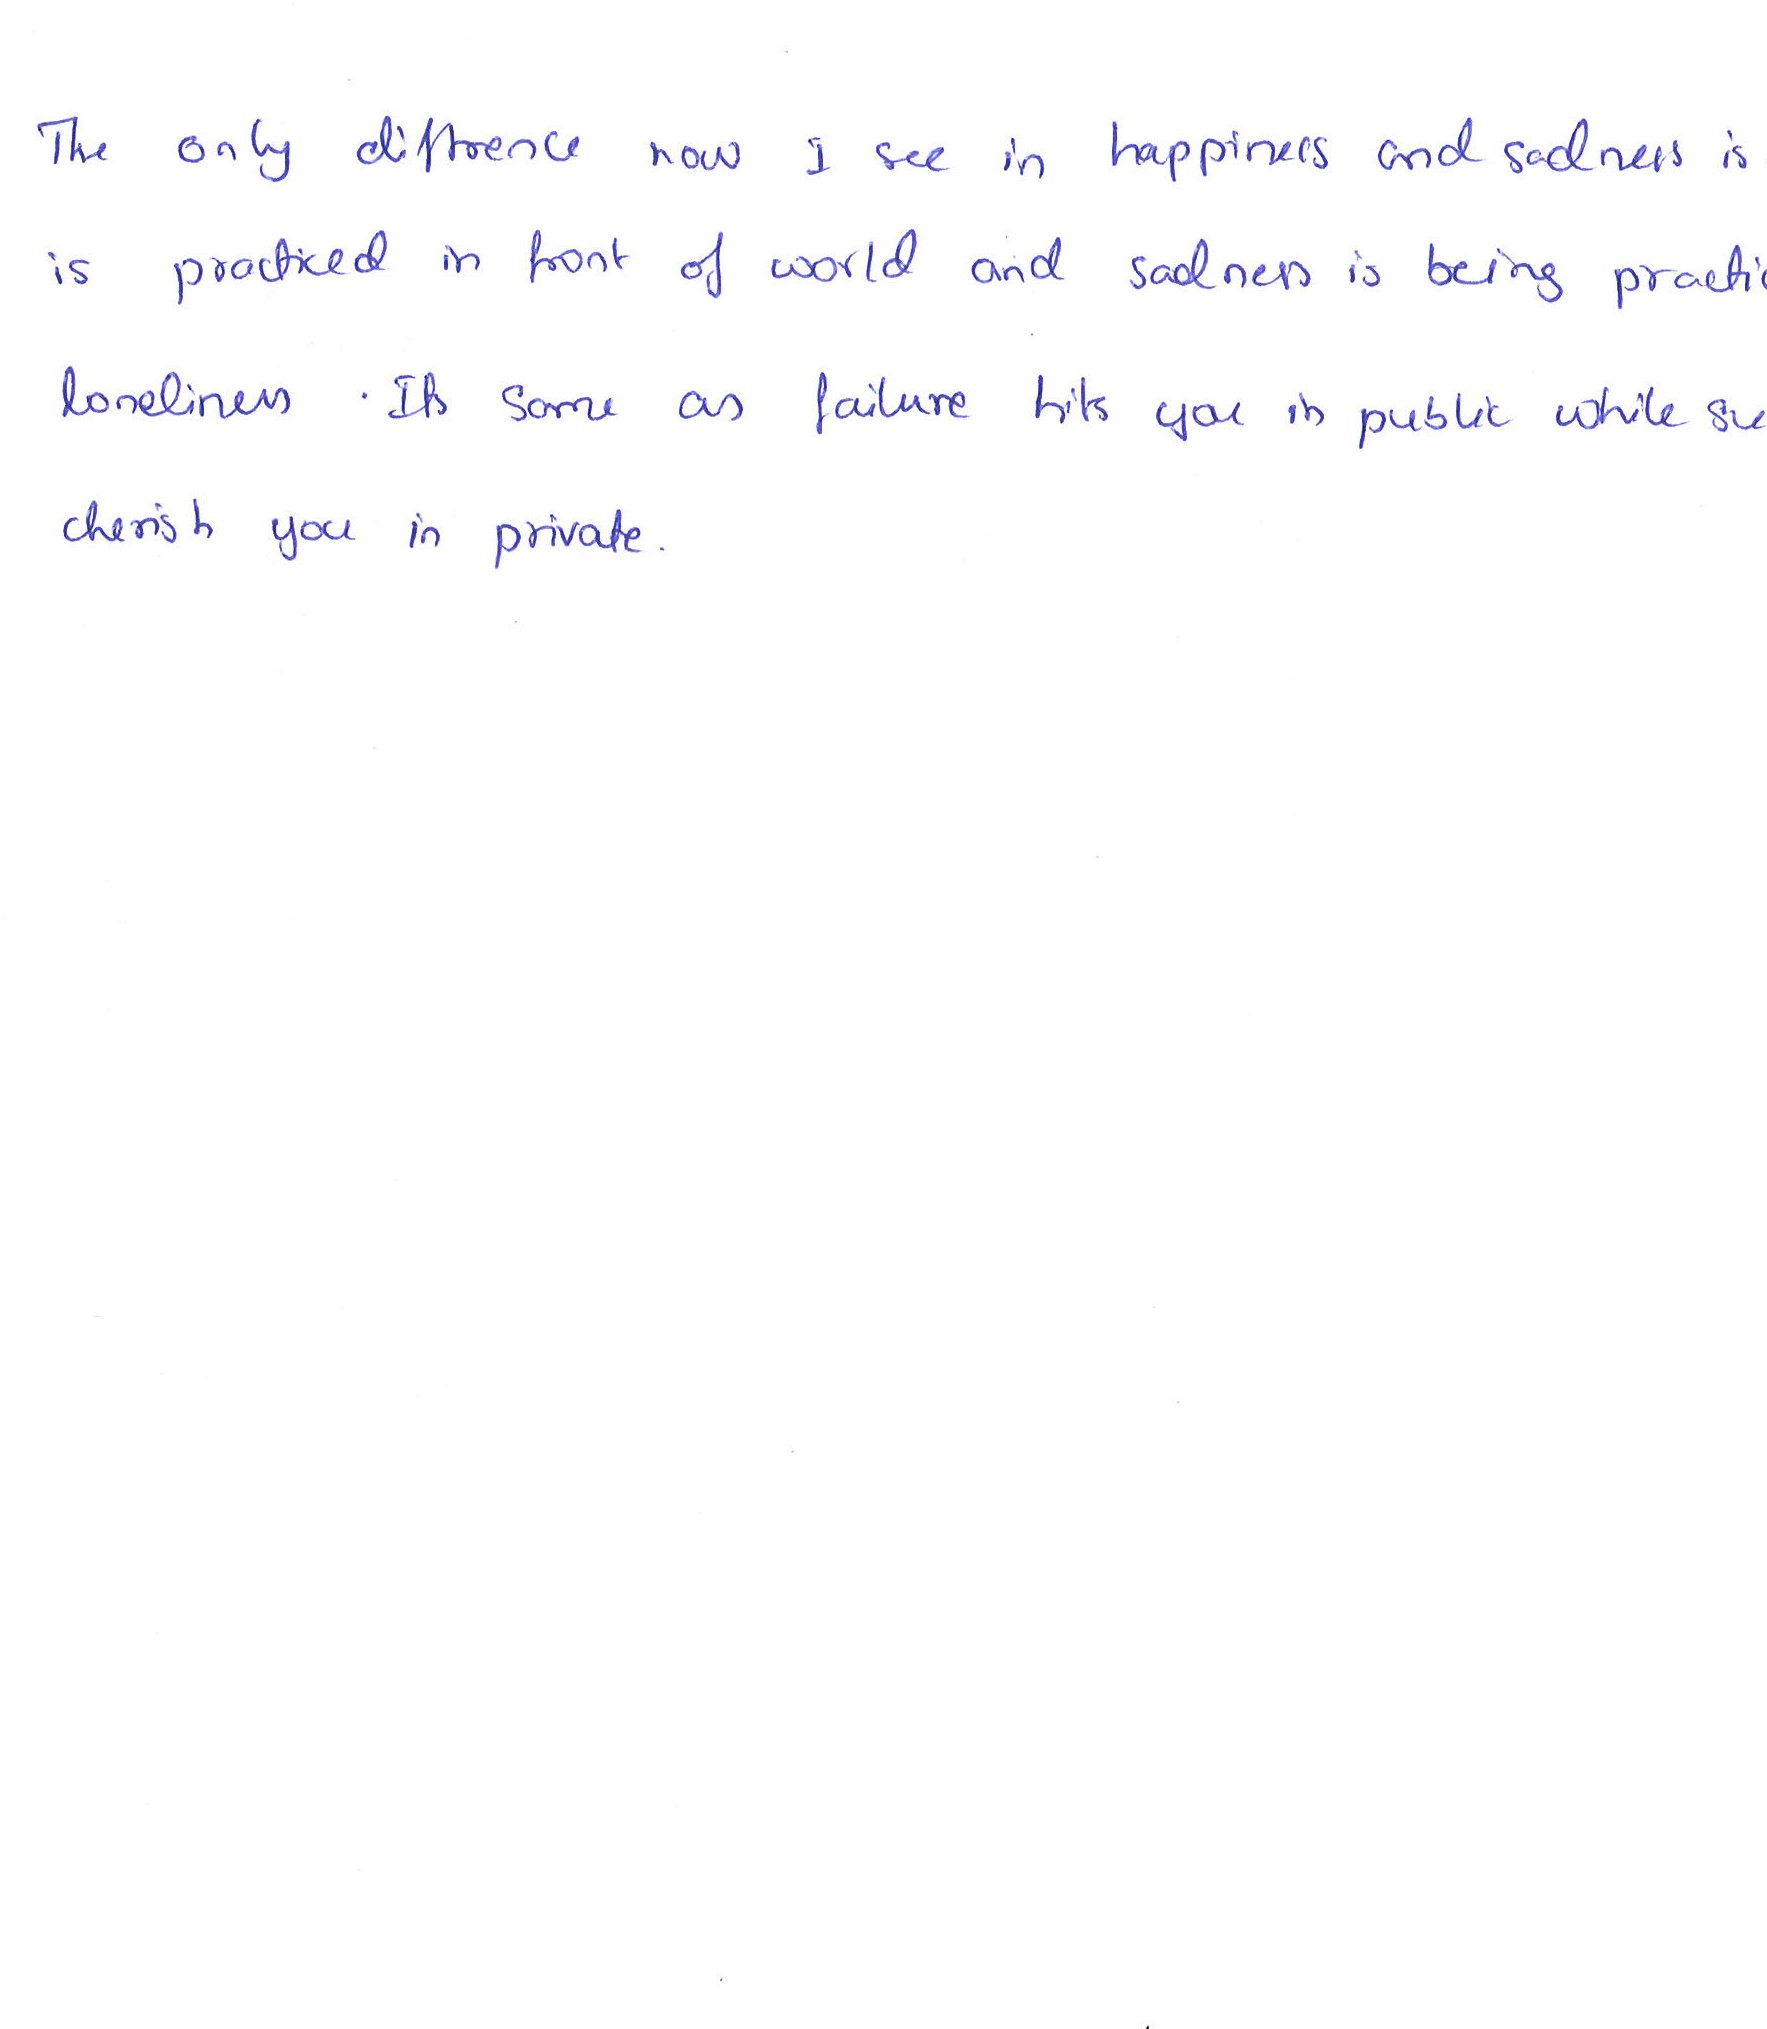 The only diffrence now I see in happiness and sadness is
is practiced in front of world and sadness is being practic
loneliness . Its same as failure hits you in public while su
cherish you in private.